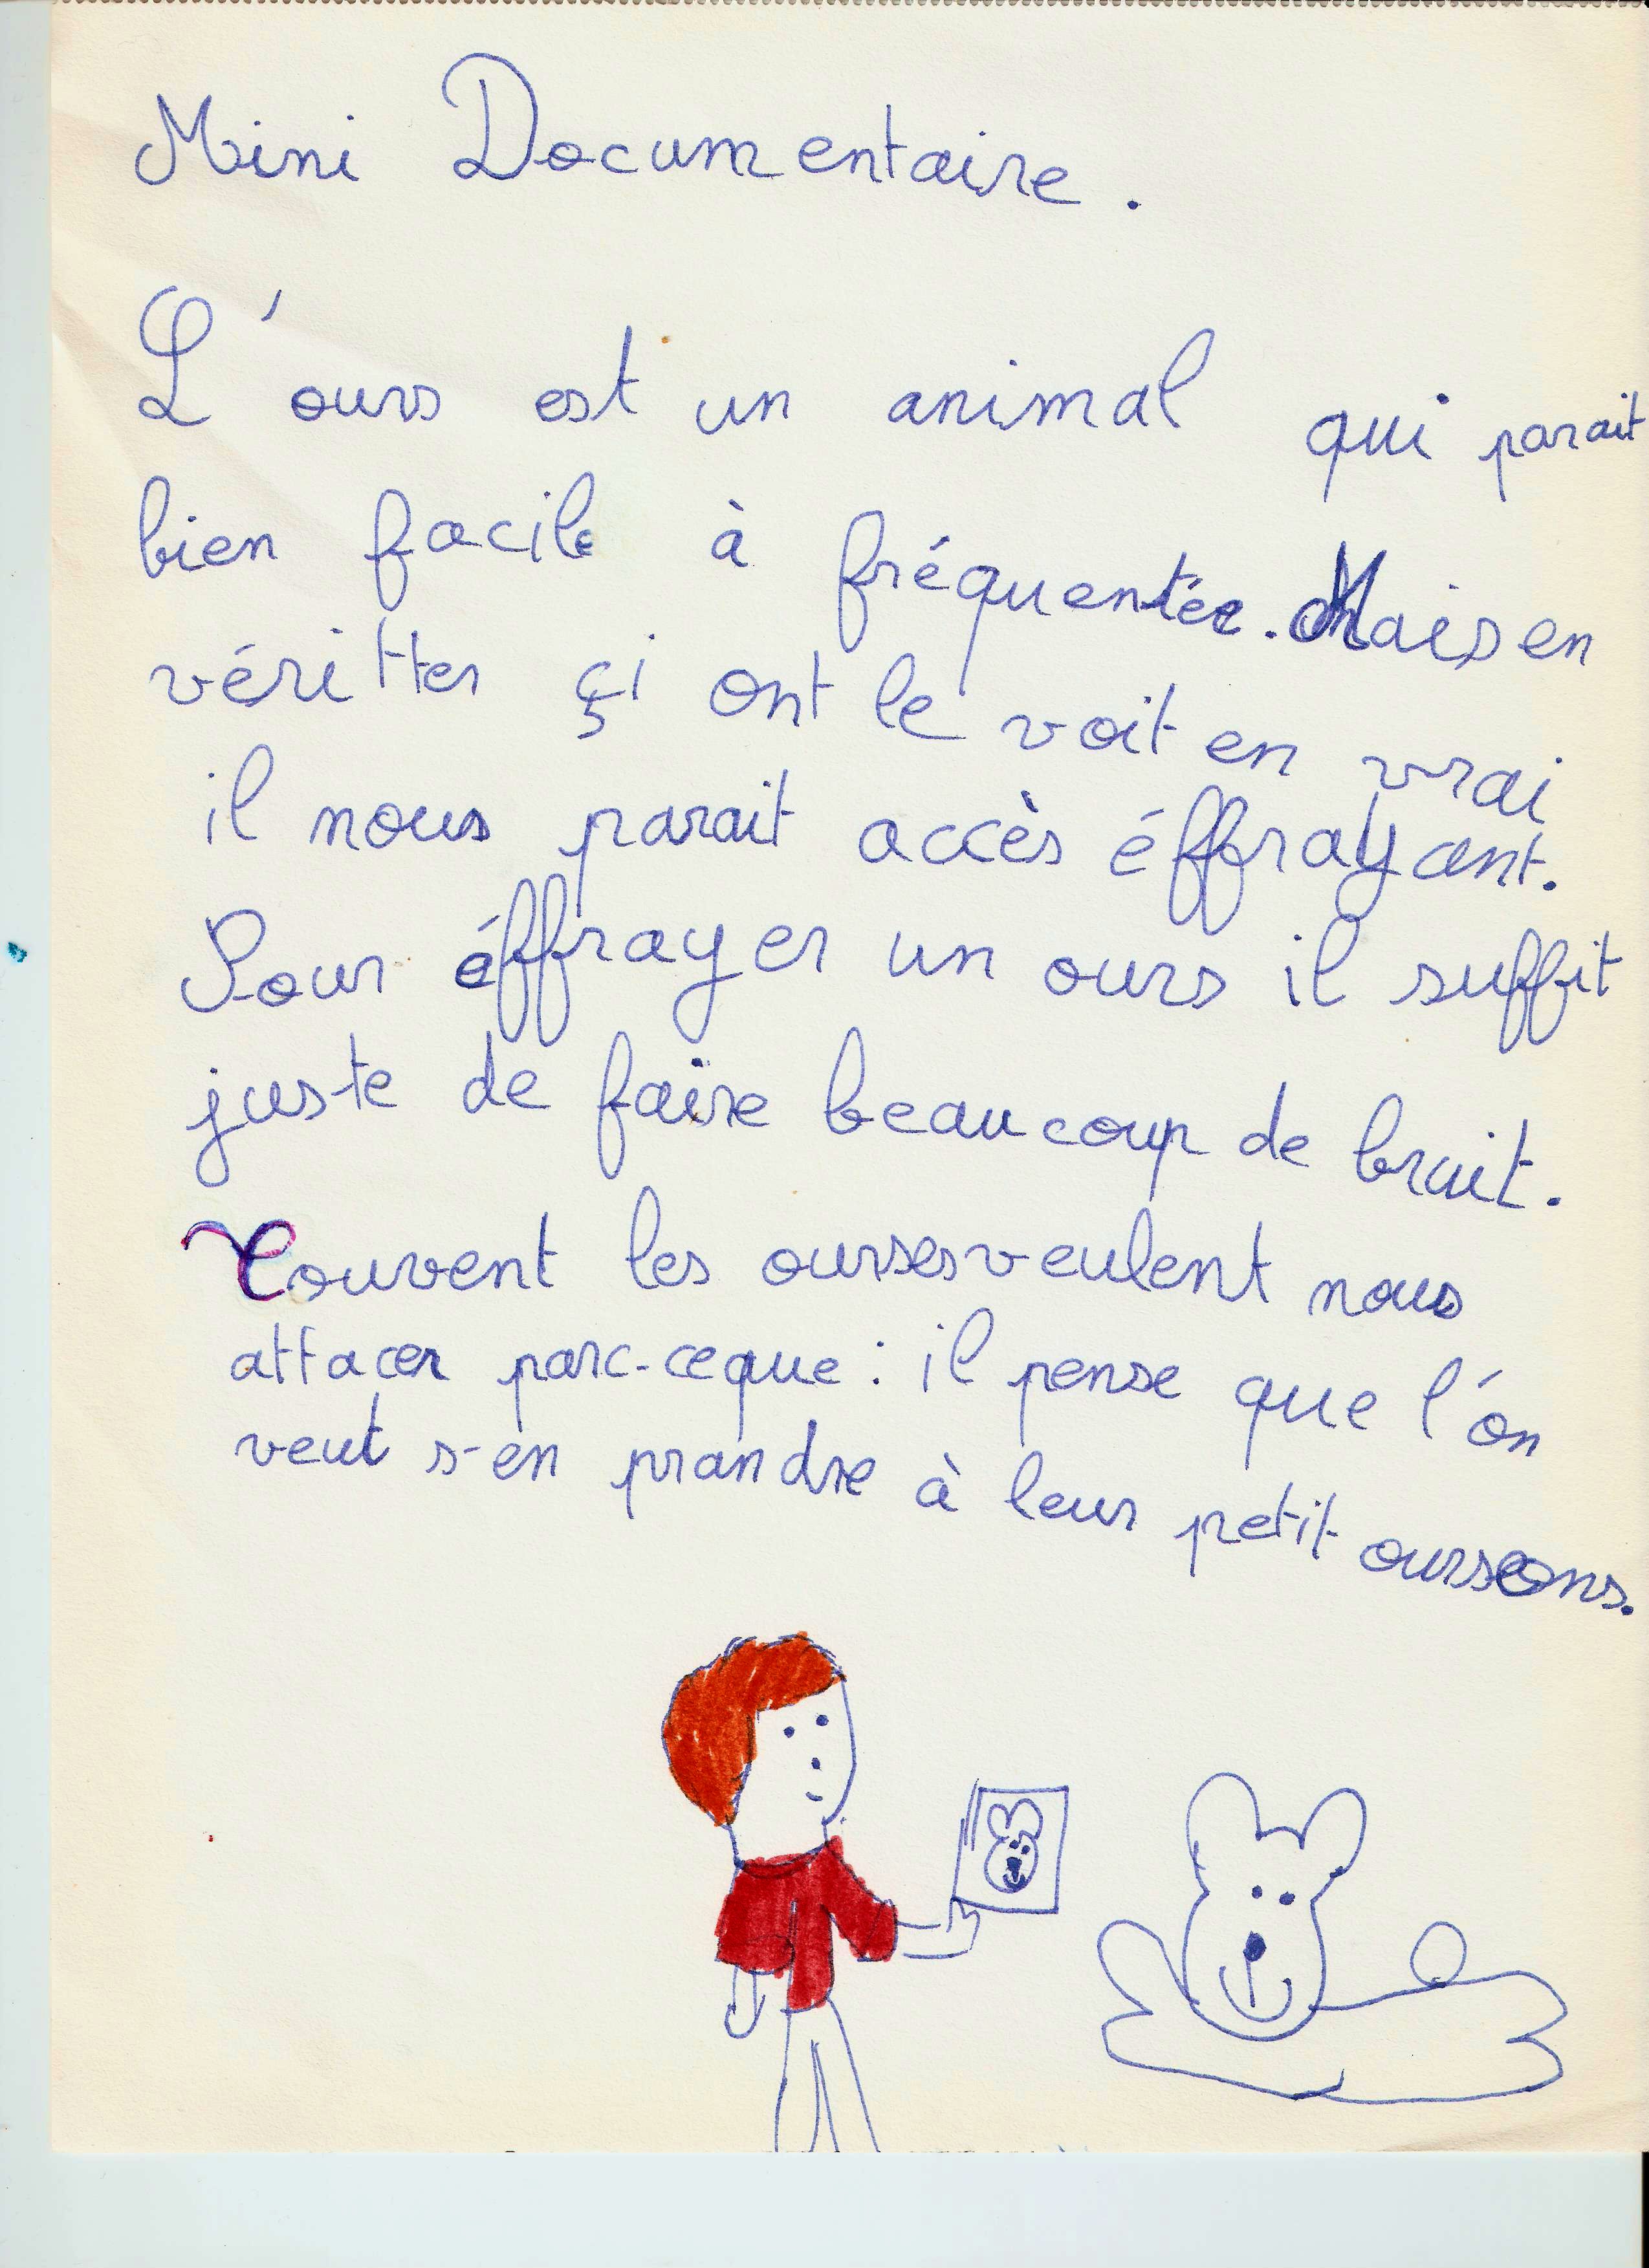 Mini Documentaire.
L'ours est un animal qui parait
bien facile à fréquentée. Mais en
véritter çi ont le voit en vrai
il nous parait accès éffrayant.
Pour éffrayer un ours il suffit
juste de faire beaucoup de bruit.
Couvent les ourses veulent nous
attacer parc-ceque : il pense que l'on
veut s-en prandre à leur petit oursons.